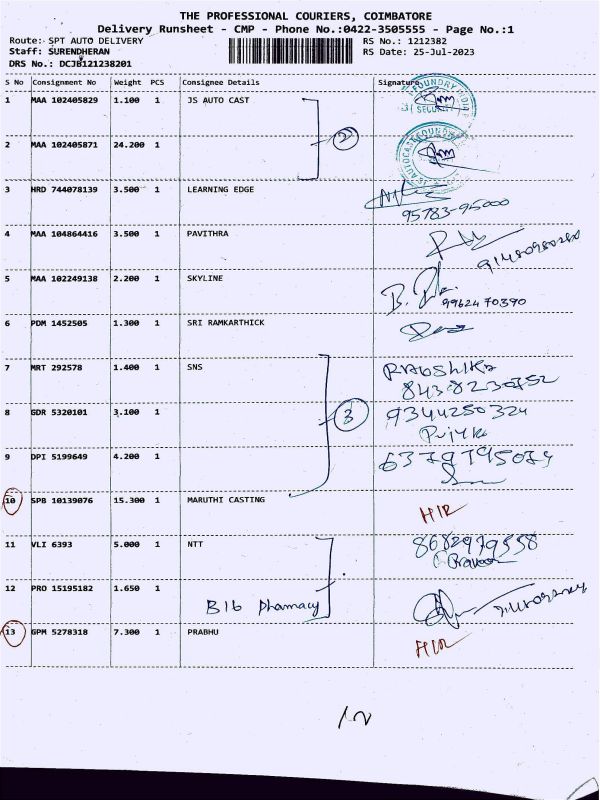 THE PROFESSIONAL COURIERS, COIMBATORE
Delivery Runsheet - CMP - Phone No.:0422-3505555 - Page No.:1
Route: SPT AUTO DELIVERY RS No.: 1212382
Staff: SURENDHERAN RS Date: 25-Jul-2023
DRS No.: DCJB121238201
S No Consignment No Weight PCS Consignee Details Signature
1 MAA 102405829 1.100 1 JS AUTO CAST
2
2 MAA 102405871 24.200 1
3 HRD 744078139 3.500 1 LEARNING EDGE
95783-95000
4 MAA 104864416 3.500 1 PAVITHRA
5 MAA 102249138 2.200 1 SKYLINE
9962470390
6 PDM 1452505 1.300 1 SRI RAMKARTHICK
7 MRT 292578 1.400 1 SNS
8438230752
8 GDR 5320101 3.100 1 3 9344250324
9 DPI 5199649 4.200 1
10 SPB 10139076 15.300 1 MARUTHI CASTING
11 VLI 6393 5.000 1 NTT 8682979558
12 PRO 15195182 1.650 1
B1b Pharmacy
13 GPM 5278318 7.300 1 PRABHU